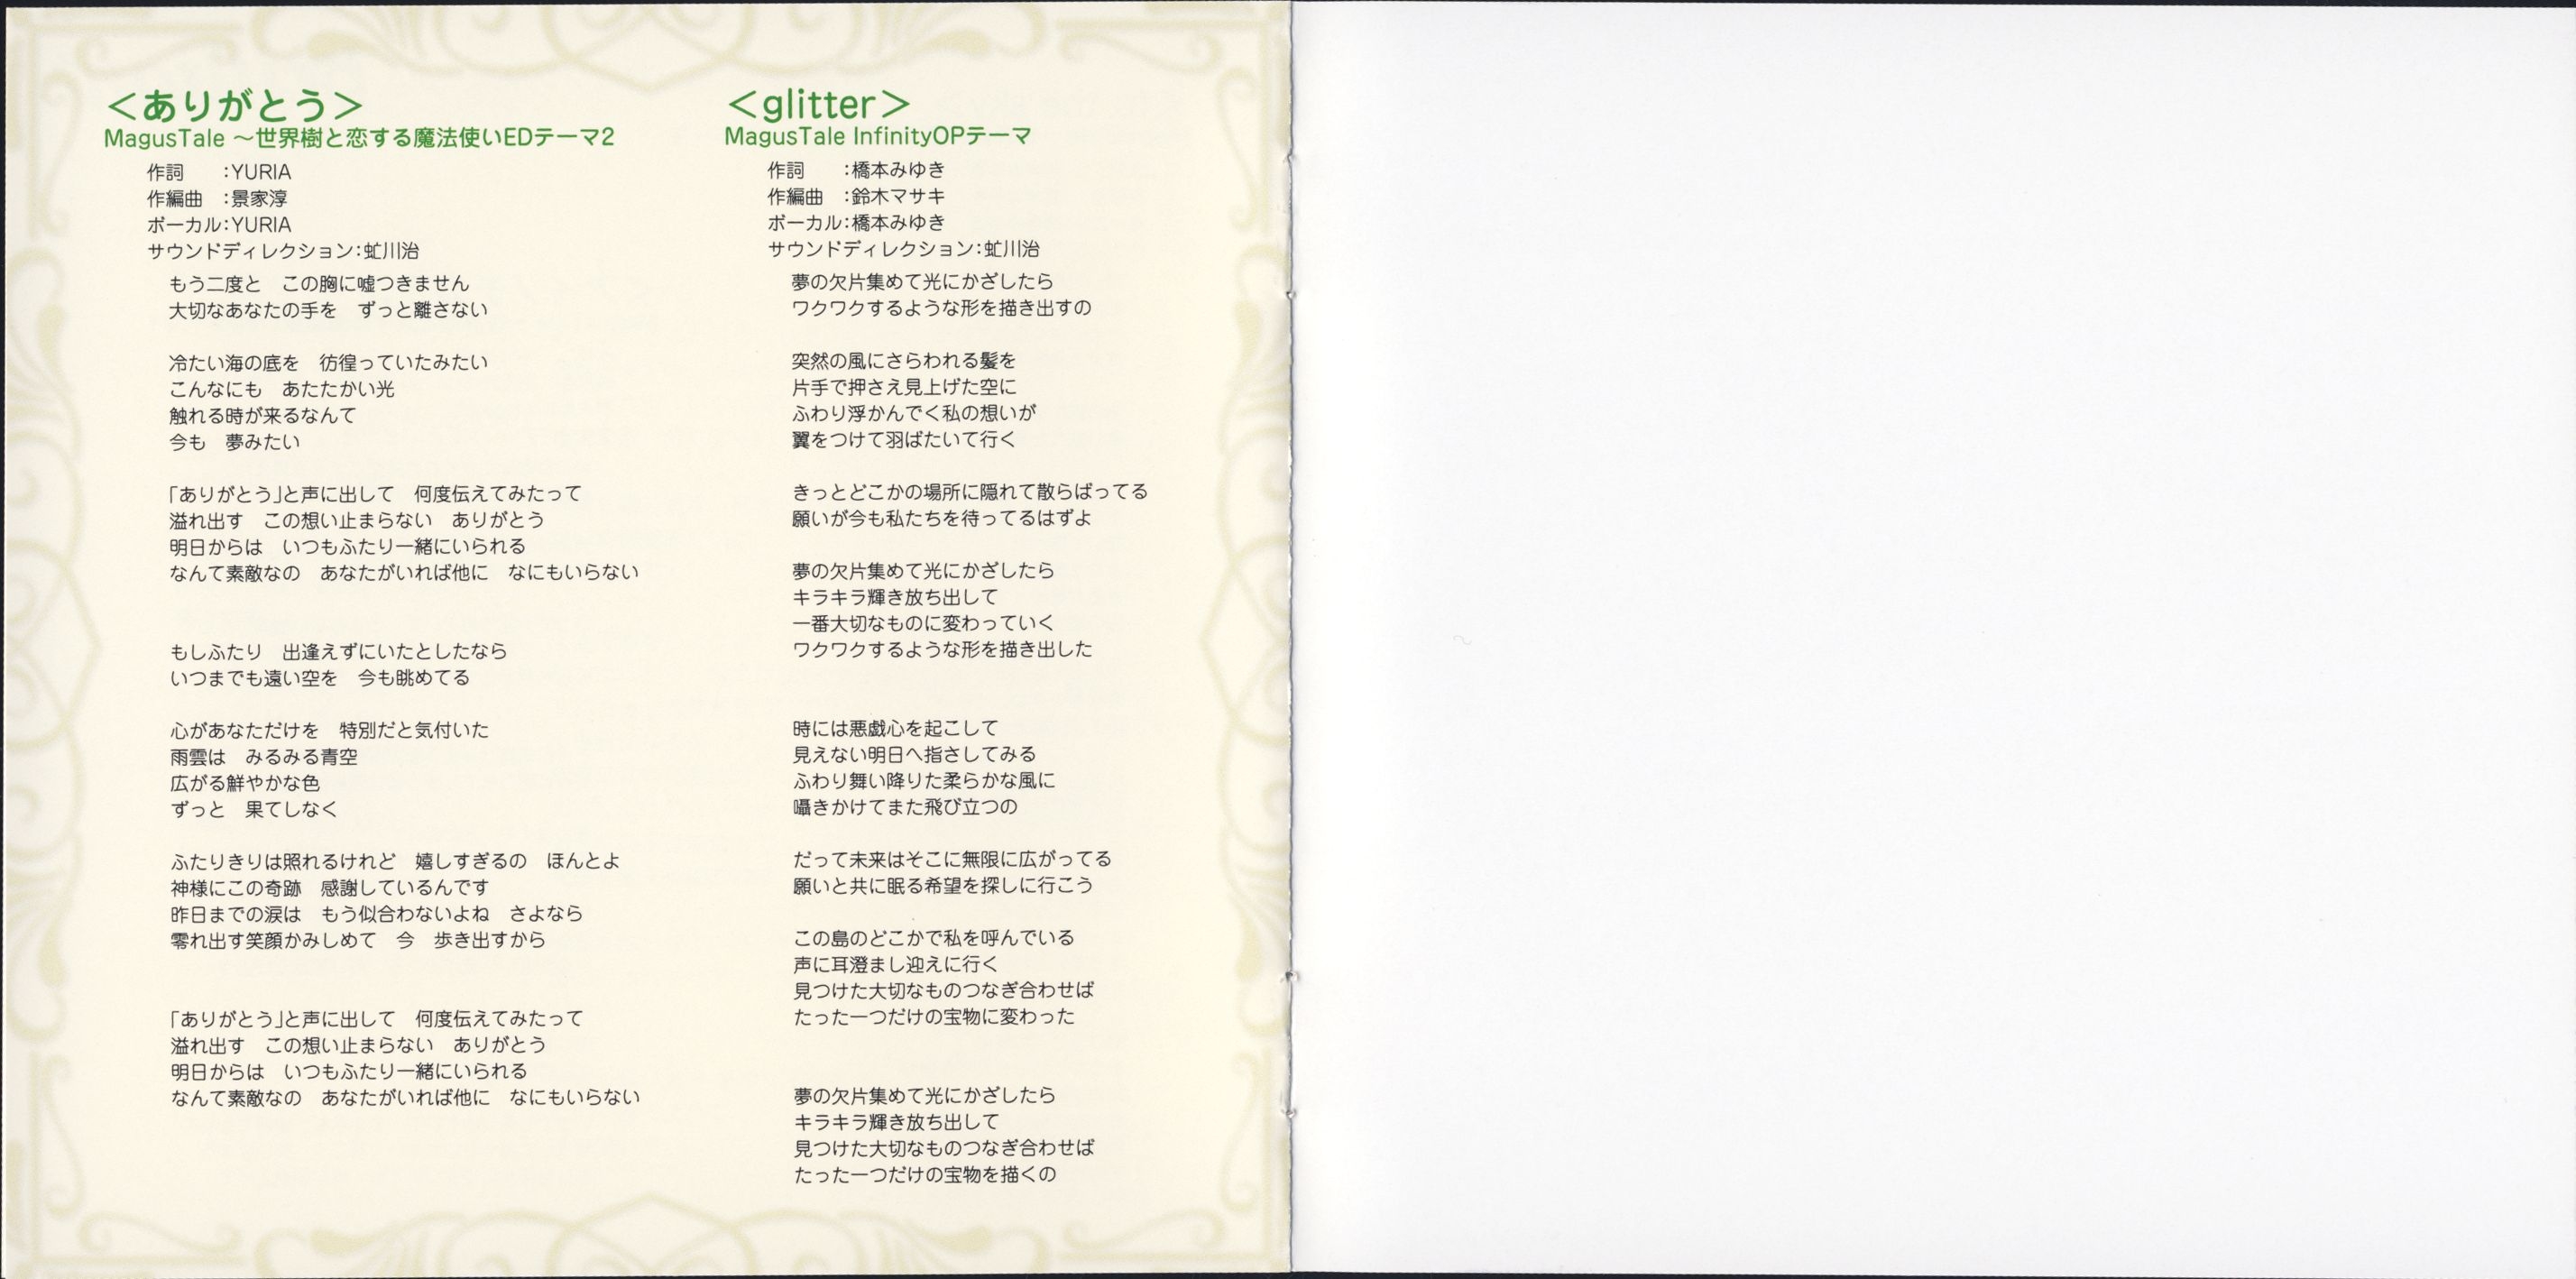 ＜ありがとう＞
MagusTale ～世界樹と恋する魔法使いEDテーマ2
作詞　　：YURIA
作編曲　：景家淳
ボーカル：YURIA
サウンドディレクション：虻川治
もう二度と　この胸に嘘つきません
大切なあなたの手を　ずっと離さない
冷たい海の底を　彷徨っていたみたい
こんなにも　あたたかい光
触れる時が来るなんて
今も　夢みたい
「ありがとう」と声に出して　何度伝えてみたって
溢れ出す　この想い止まらない　ありがとう
明日からは　いつもふたり一緒にいられる
なんて素敵なの　あなたがいれば他に　なにもいらない
もしふたり　出逢えずにいたとしたなら
いつまでも遠い空を　今も眺めてる
心があなただけを　特別だと気付いた
雨雲は　みるみる青空
広がる鮮やかな色
ずっと　果てしなく
ふたりきりは照れるけれど　嬉しすぎるの　ほんとよ
神様にこの奇跡　感謝しているんです
昨日までの涙は　もう似合わないよね　さよなら
零れ出す笑顔かみしめて　今　歩き出すから
「ありがとう」と声に出して　何度伝えてみたって
溢れ出す　この想い止まらない　ありがとう
明日からは　いつもふたり一緒にいられる
なんて素敵なの　あなたがいれば他に　なにもいらない
＜glitter＞
MagusTale InfinityOPテーマ
作詞　　：橋本みゆき
作編曲　：鈴木マサキ
ボーカル：橋本みゆき
サウンドディレクション：虻川治
夢の欠片集めて光にかざしたら
ワクワクするような形を描き出すの
突然の風にさらわれる髪を
片手で押さえ見上げた空に
ふわり浮かんでく私の想いが
翼をつけて羽ばたいて行く
きっとどこかの場所に隠れて散らばってる
願いが今も私たちを待ってるはずよ
夢の欠片集めて光にかざしたら
キラキラ輝き放ち出して
一番大切なものに変わっていく
ワクワクするような形を描き出した
時には悪戯心を起こして
見えない明日へ指さしてみる
ふわり舞い降りた柔らかな風に
囁きかけてまた飛び立つの
だって未来はそこに無限に広がってる
願いと共に眠る希望を探しに行こう
この島のどこかで私を呼んでいる
声に耳澄まし迎えに行く
見つけた大切なものつなぎ合わせば
たった一つだけの宝物に変わった
夢の欠片集めて光にかざしたら
キラキラ輝き放ち出して
見つけた大切なものつなぎ合わせば
たった一つだけの宝物を描くの